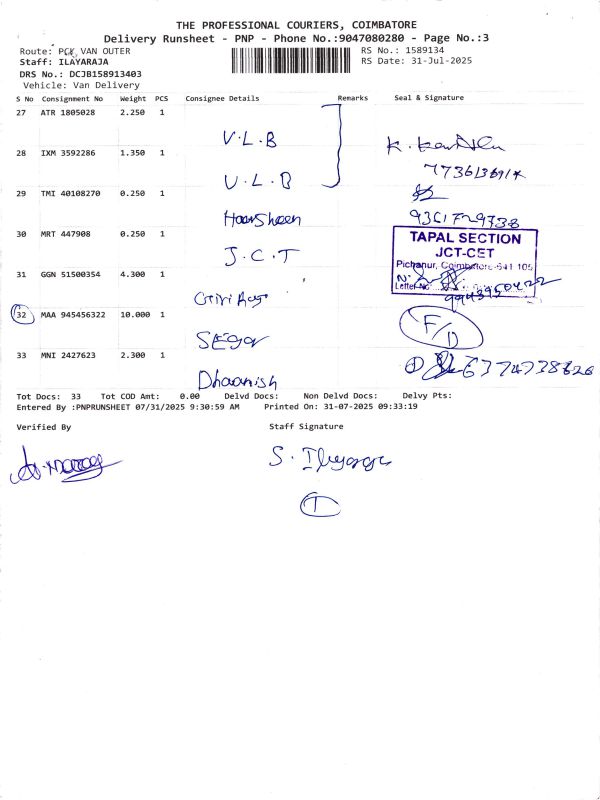 THE PROFESSIONAL COURIERS, COIMBATORE
Delivery Runsheet - PNP - Phone No.:9047080280 - Page No.:3
Route: VAN OUTER
RS No.: 1589134
Staff: ILAYARAJA
RS Date: 31-Jul-2025
DRS No.: DCJB158913403
Vehicle: Van Delivery
S No Consignment No Weight PCS Consignee Details Remarks Seal & Signature
27 ATR 1805028 2.250 1
V.L.B
28 IXM 3592286 1.350 1
V.L.B
29 TMI 40108270 0.250 1
9361729738
30 MRT 447908 0.250 1
J.C.T
TAPAL SECTION
JCT-CET
Pichanur, Coimbatore-641 105
Letter No
31 GGN 51500354 4.300 1
32 MAA 945456322 10.000 1
F/D
33 MNI 2427623 2.300 1
Dhaanish
Tot Docs: 33 Tot COD Amt: 0.00 Delvd Docs: Non Delvd Docs: Delvy Pts:
Entered By :PNPRUNSHEET 07/31/2025 9:30:59 AM Printed On: 31-07-2025 09:33:19
Verified By Staff Signature